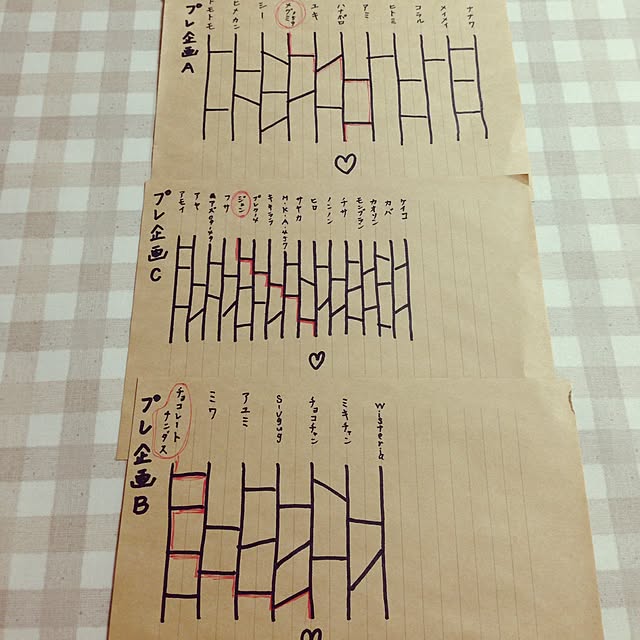 プレ企画A
トモトモ
ヒメカン
シー
メグミ
ユキ
ハナポロ
アミ
ヒトミ
コラル
メイメイ
ナナワ
プレ企画C
アモイ
アヤ
フサ
ジュン
キキララ
サヤカ
ヒロ
ノンノン
チサ
モンブラン
カオソン
カバ
ケイコ
プレ企画B
チョコレート
ナンダス
ミワ
アユミ
チョコチャン
ミキチャン
wisteria